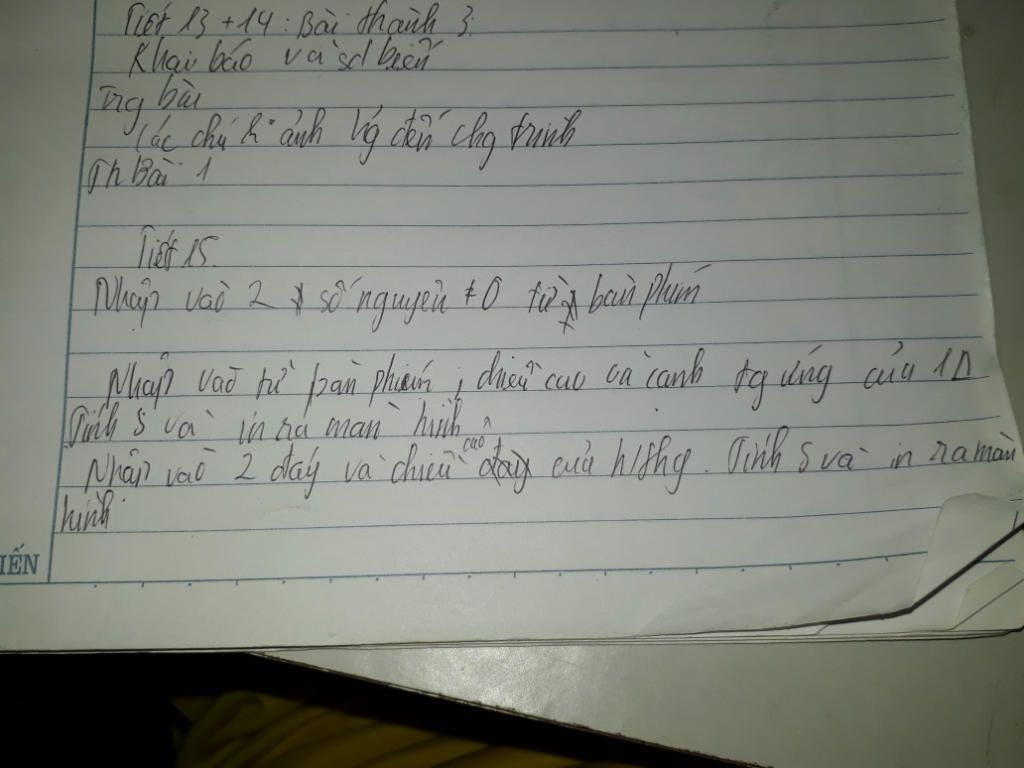 Tiết 13 + 14: Bài thành 3.
Khai báo và sd biến
Ứng bài
Các chú h° ảnh Vg đến chg trình
Th Bài 1
Tiết 15.
Nhập vào 2 số nguyên ≠ 0 từ bàn phím
Nhập vào từ bàn phím, chiều cao và cạnh tg ứng của 1Δ
Tính S và in ra màn hình
Nhập vào 2 đáy và chiều cao của h/thg. Tính S và in ra màn
hình
IẾN